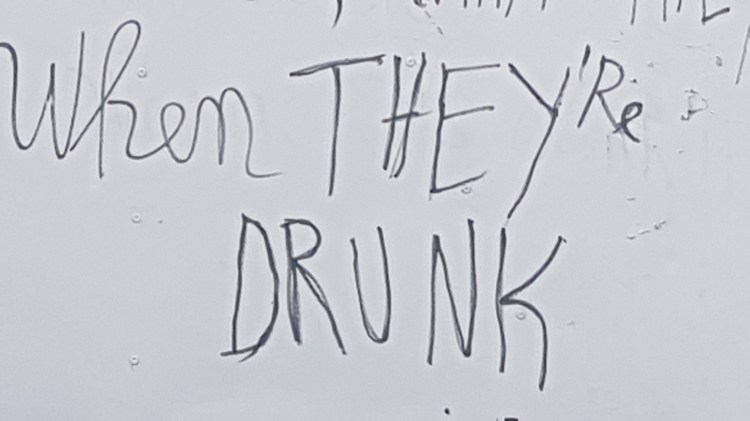 When THEY'Re
DRUNK